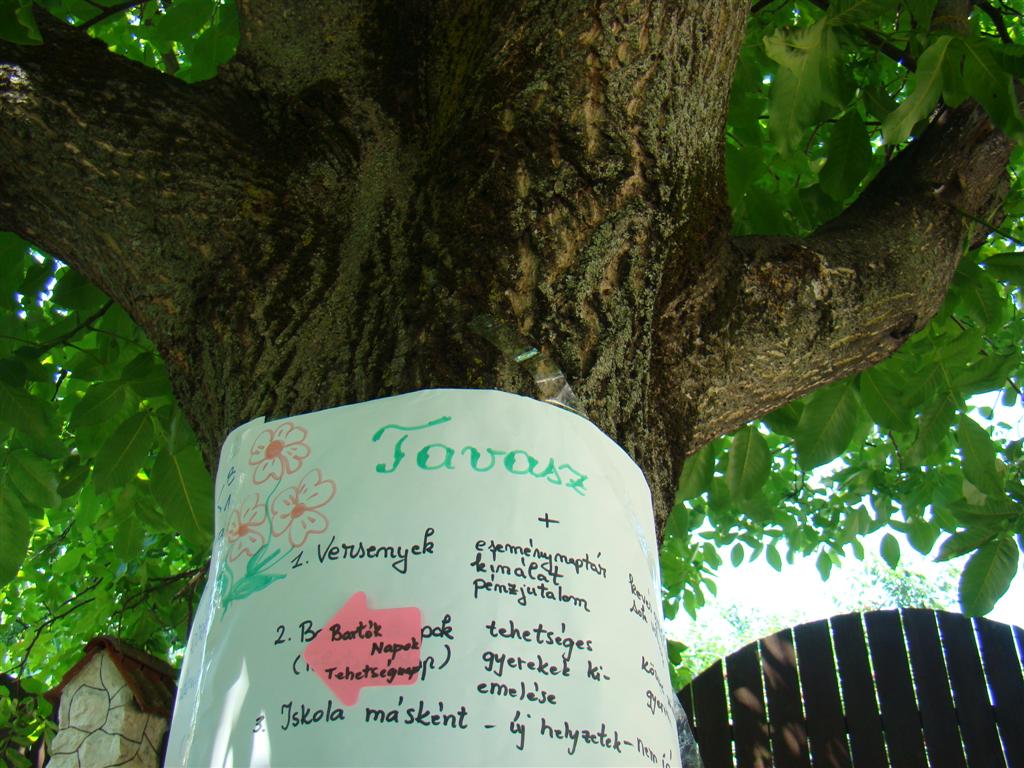 Tavasz
+
1. Versenyek eseménynaptár
kínálat
pénzjutalom
2. tehetséges
Bartók
Napok
Tehetségnap
gyerekek ki-
emelése
3. Iskola másként - új helyzetek - nem